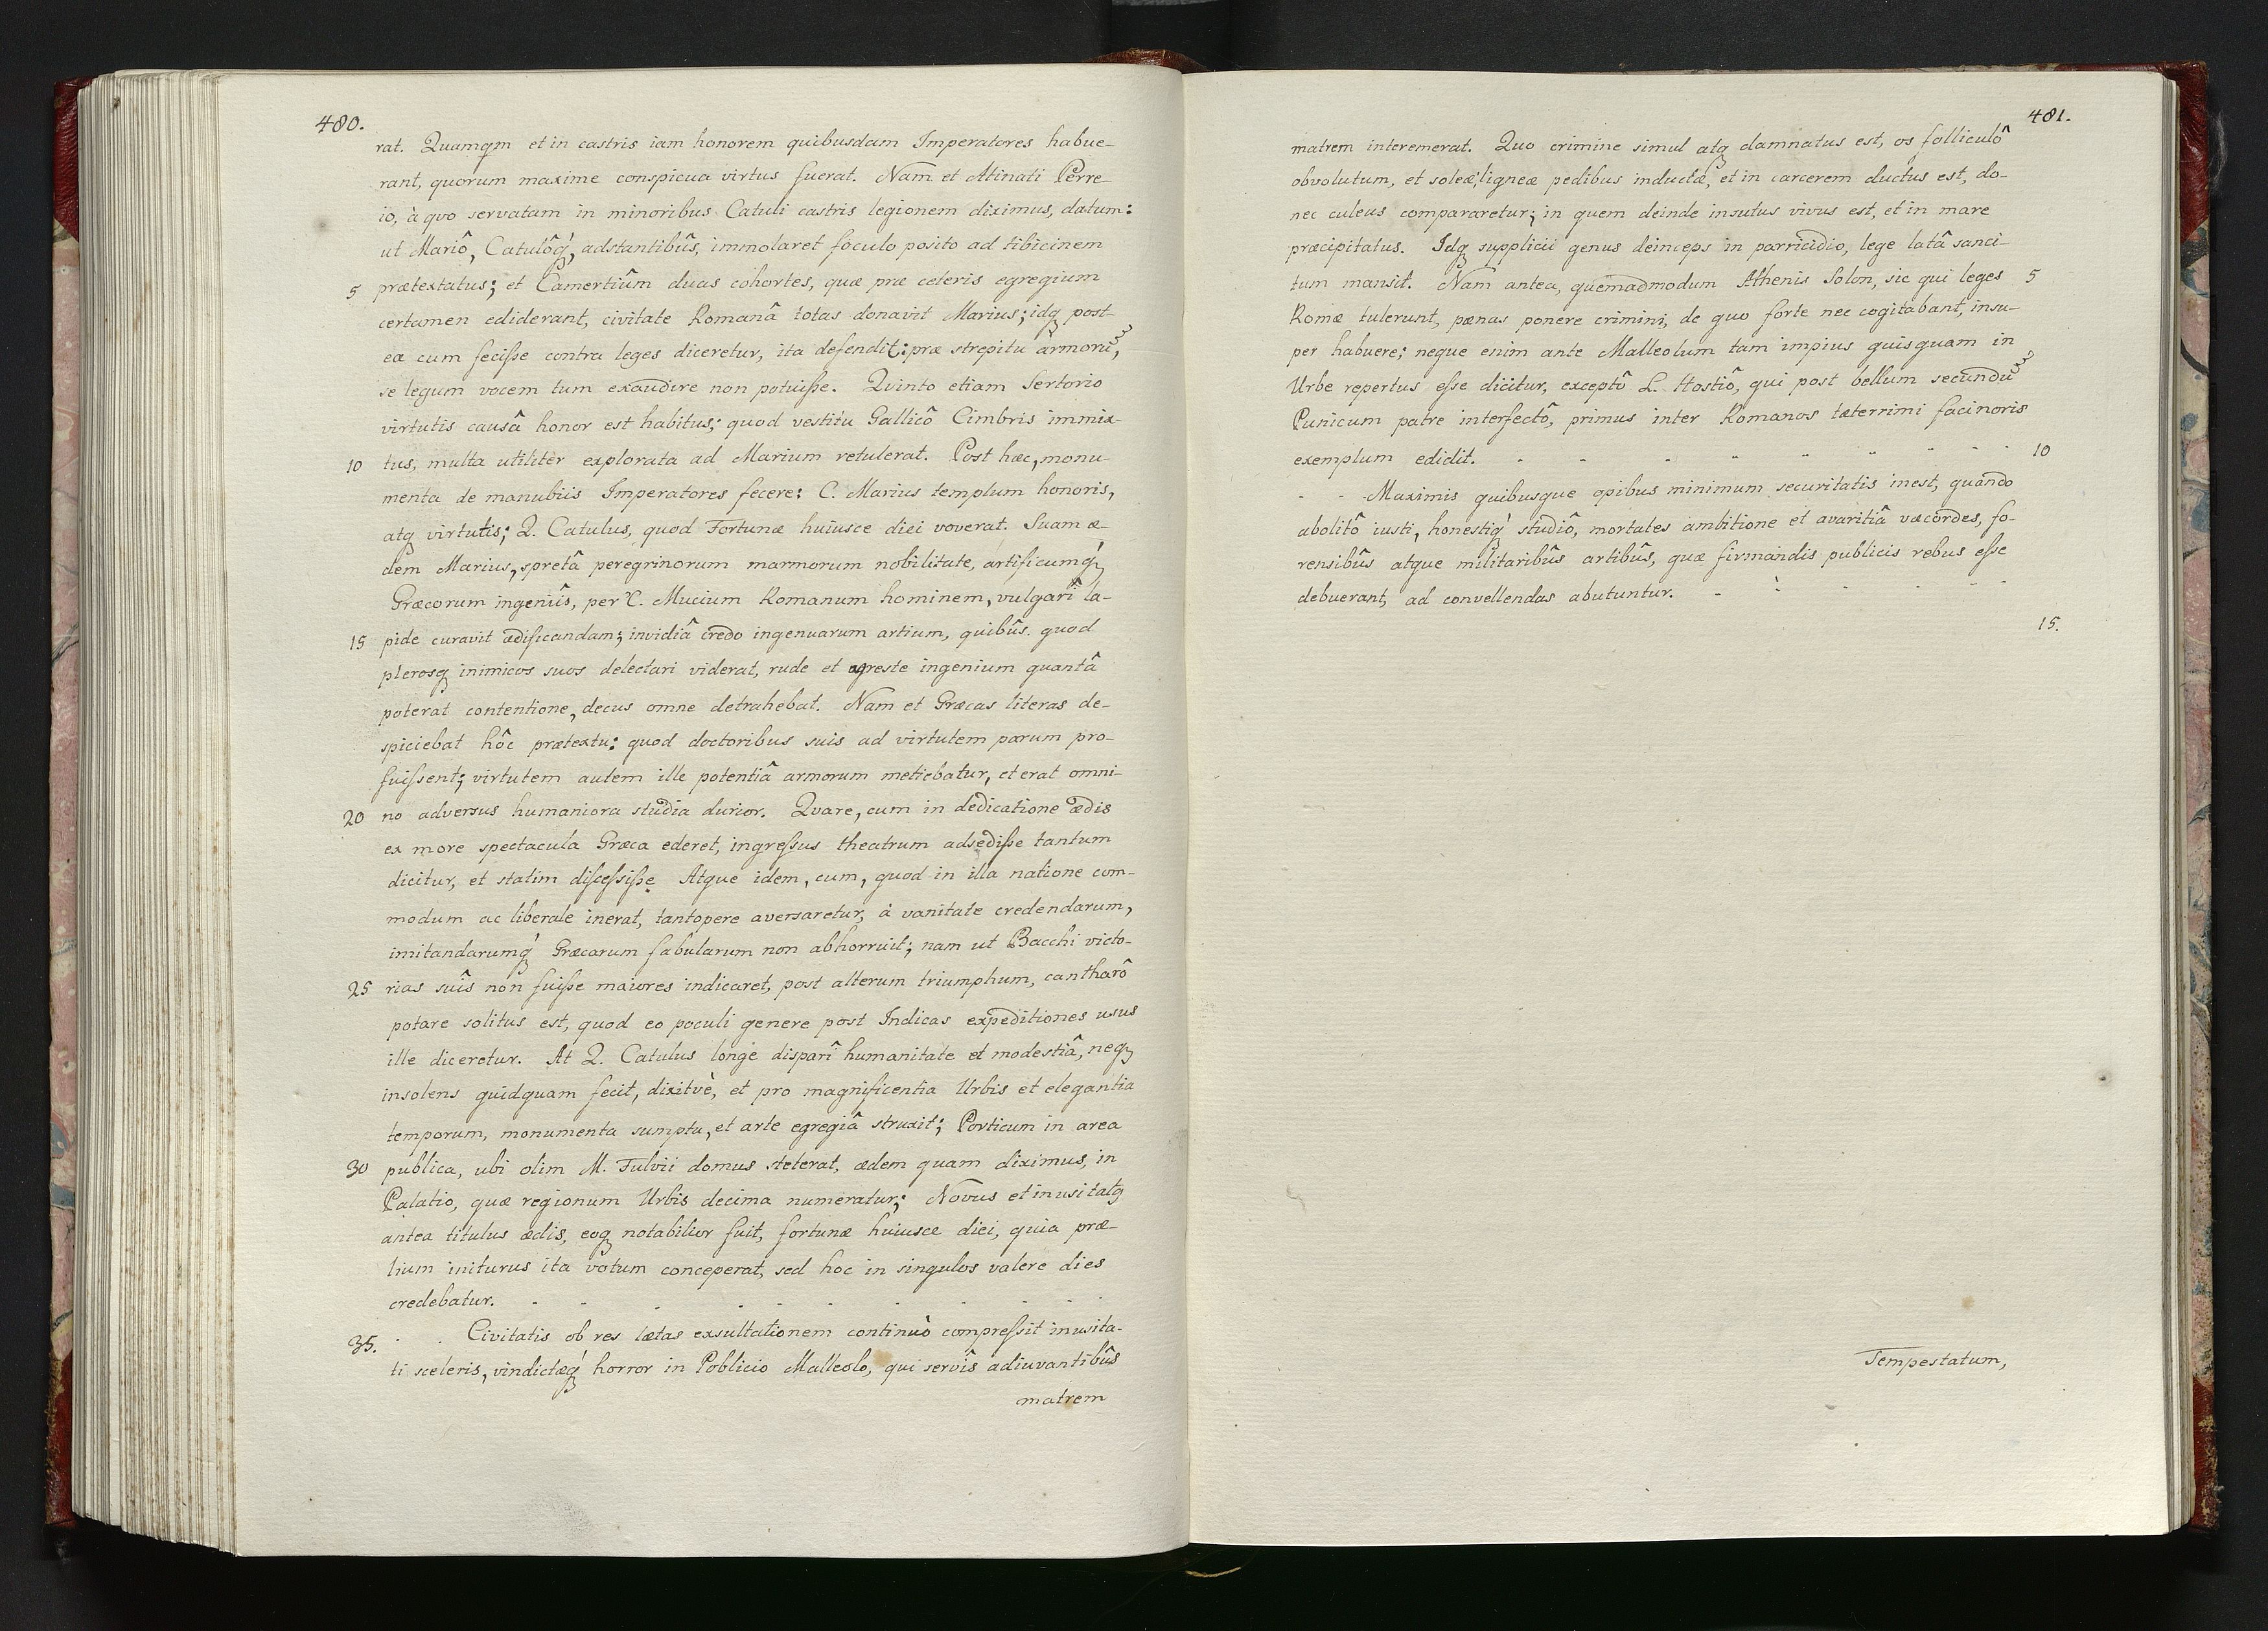 480.
rat. Quamqm et in castris iam honorem quibusdam Imperatores habue-
rant, quorum maxime conspicua virtus fuerat. Nam et Atinati Perre-
io, à quo servatam in minoribus Catuli castris legionem diximus, datum:
ut Mariô, Catulôq́, adstantibûs, immolaret foculo posito ad tibicinem
5 prætextatus; et Camertiûm duas cohortes, quæ præ ceteris egregium
certamen ediderant, civitate Romanâ totas donavit Marius; idq post-
ea cum fecisse contra leges diceretur, ita defendit: præ strepitu armorũ,
se legum vocem tum exaudire non potuisse. Qvinto etiam Sertorio
virtutis causâ honor est habitus; quod vestitu Gallicô Cimbris immix-
10 tus, multa utiliter explorata ad Marium retulerat. Post hæc, monu-
menta de manubiis Imperatores fecere: C. Marius templum honoris,
atq virtutis; Q. Catulus, quod Fortunæ huiusce diei voverat. Suam æ-
dem Marius, spretâ peregrinorum marmorum nobilitate, artificumq́,
Græcorum ingeniîs, per C. Mucium Romanum hominem, vulgarî la-
15 pide curavit ædificandam; invidiâ credo ingenuarum artium, quibûs quod
plerosq inimicos suos delectari viderat, rude et agreste ingenium quantâ
poterat contentione, decus omne detrahebat. Nam et Græcas literas de-
spiciebat hôc prætextu: quod doctoribus suis ad virtutem parum pro-
fuissent; virtutem autem ille potentiâ armorum metiebatur, et erat omni-
20 no adversus humaniora studia durior. Qvare, cum in dedicatione ædis
ex more spectacula Græca ederet, ingressus theatrum adsedisse tantum
dicitur, et statim discessisse. Atque idem, cum, quod in illa natione com-
modum ac liberale inerat, tantopere aversaretur, à vanitate credendarum,
imitandarumq́ Græcarum fabularum non abhorruit; nam ut Bacchi victo-
25 rias suîs non fuisse maiores indicaret, post alterum triumphum, cantharô
potare solitus est, quod eo poculi genere post Indicas expeditiones usus
ille diceretur. At Q. Catulus longè disparî humanitate et modestiâ, neq
insolens quidquam fecit, dixitvè, et pro magnificentia Urbis et elegantia
temporum, monumenta sumptu, et arte egregiâ struxit; Porticum in area
30 publica, ubi olim M. Fulvii domus steterat, ædem quam diximus, in
Palatio, quæ regionum Urbis decima numeratur; Novus et inusitatq
antea titulus ædis, eoq notabilior fuit, fortunæ huiusce diei, quia præ-
lium initurus ita votum conceperat, sed hoc in singulos valere dies
credebatur. - - - - - - - - - -
35. - - Civitatis ob res lætas exsultationem continuò compressit inusita-
ti sceleris, vindictæq́ horror in Poblicio Malleolo, qui servîs adiuvantibûs
matrem
481.
matrem interemerat. Quo crimine simul atq damnatus est, os folliculô
obvolutum, et soleæ ligneæ pedibus inductæ, et in carcerem ductus est, do-
nec culeus compararetur; in quem deinde insutus vivus est, et in mare
præcipitatus. Idq supplicii genus deinceps in parricidio, lege latâ sanci-
tum mansit. Nam antea, quemadmodum Athenis Solon, sic qui leges 5
Romæ tulerunt, pænas ponere crimini, de quo forte nec cogitabant, insu-
per habuere; neque enim ante Malleolum tam impius quisquam in
Urbe repertus esse dicitur, exceptô L. Hostiô, qui post bellum secundũ
Punicum patre interfectô, primus inter Romanos tæterrimi facinoris
exemplum edidit. - - - - - - - - 10
- - Maximis quibusque opibus minimum securitatis inest, quando
abolitô iusti, honestiq́ studiô, mortales ambitione et avaritiâ væcordes, fo-
rensibûs atque militaribûs artibûs, quæ firmandis publicis rebus esse
debuerant, ad convellendas abutuntur. - - - - - -
15.
Tempestatum,